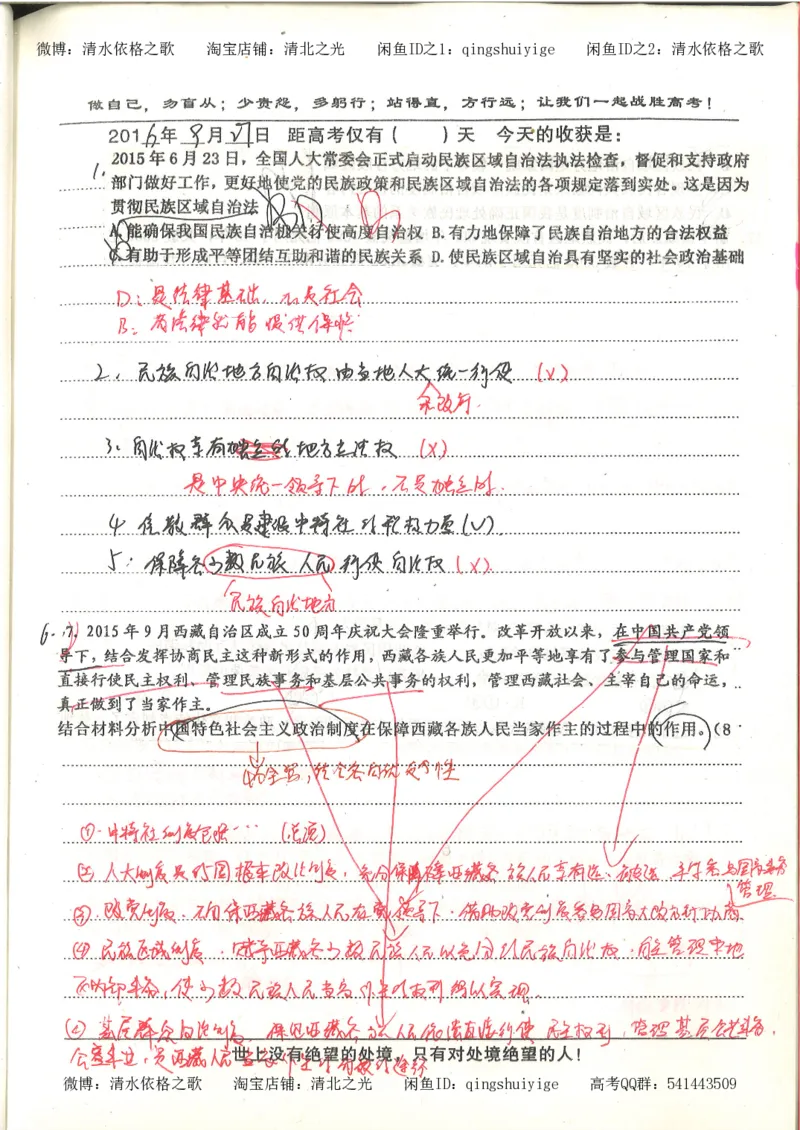 微博：清水依格之歌 淘宝店铺：清北之光 闲鱼ID之1：qingshuiyige 闲鱼ID之2：清水依格之歌
做自己，勿盲从；少责怨，多躬行；站得直，方行远；让我们一起战胜高考！
2016年9月27日 距高考仅有（ ）天 今天的收获是：
1. 2015年6月23日，全国人大常委会正式启动民族区域自治法执法检查，督促和支持政府
部门做好工作，更好地使党的民族政策和民族区域自治法的各项规定落到实处。这是因为
贯彻民族区域自治法
A.能确保我国民族自治机关行使高度自治权 B.有力地保障了民族自治地方的合法权益
C.有助于形成平等团结互助和谐的民族关系 D.使民族区域自治具有坚实的社会政治基础
D：是法律基础，不是社会
B：有法律就能提供保障
2. 民族自治地方自治权由当地人大统一行使 (×)
和政府.
3. 自治权享有独立的地方立法权 (×)
是中央统一领导下的，不是独立的.
4 信教群众是建设中特社的积极力量(√).
5. 保障各少数民族人民行使自治权 (×)
民族自治地方
6. 7. 2015年9月西藏自治区成立50周年庆祝大会隆重举行。改革开放以来，在中国共产党领
导下，结合发挥协商民主这种新形式的作用，西藏各族人民更加平等地享有了参与管理国家和
直接行使民主权利、管理民族事务和基层公共事务的权利，管理西藏社会、主宰自己的命运，
真正做到了当家作主。
结合材料分析中国特色社会主义政治制度在保障西藏各族人民当家作主的过程中的作用。（8
① 中特社制度包括… (总原)
② 人大制度是我国根本政治制度，充分保障西藏各族人民享有
管理
③ 政党制度
④ 民族区域制度，西藏各少数民族人民以充分的民族自治权，自主管理本地
区内部事务，使少数民族人民当家作主的权利得以实现
基层群众自治制度，保证西藏各族人民依法直接行使民主权利，管理基层公共事务，
公益事业，是西藏人民当家作主的有效的途径
世上没有绝望的处境，只有对处境绝望的人！
微博：清水依格之歌 淘宝店铺：清北之光 闲鱼ID：qingshuiyige 高考QQ群：541443509